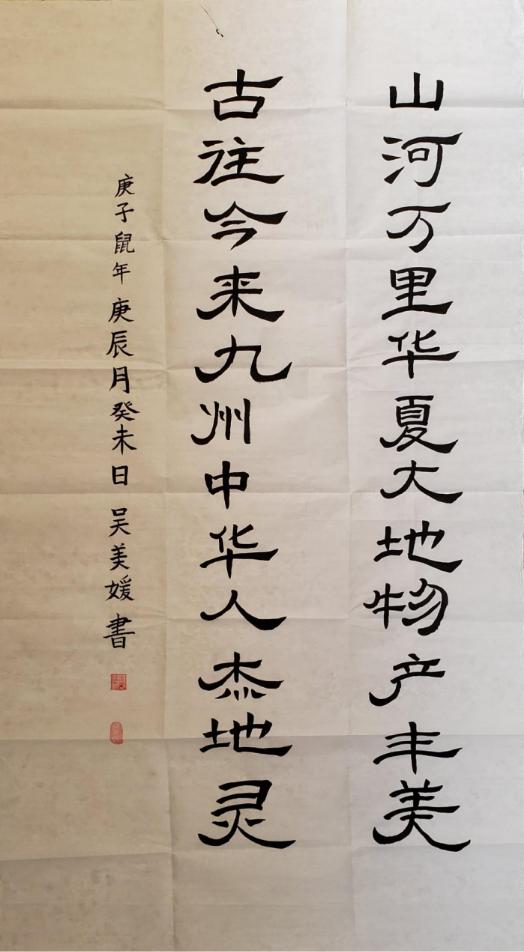 山河万里华夏大地物产丰美
古往今来九州中华人杰地灵
庚子鼠年庚辰月癸未日吴美媛書